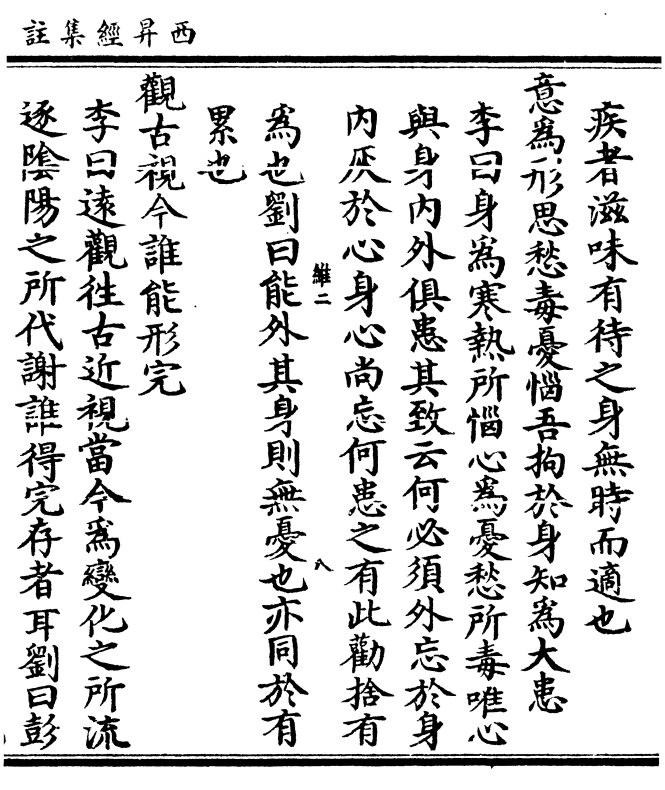 西昇經集註
疾者滋味有待之身無時而適也
意爲形思愁毒憂惱吾拘於身知爲大患
李曰身爲寒熱所惱心爲憂愁所毒唯心
與身內外俱患其致云何必須外忘於身
內灰於心身心尚忘何患之有此勸捨有
維二
八
爲也劉曰能外其身則無憂也亦同於有
累也
觀古視今誰能形完
李曰遠觀往古近視當今爲變化之所流
逐陰陽之所代謝誰得完存者耳劉曰彭